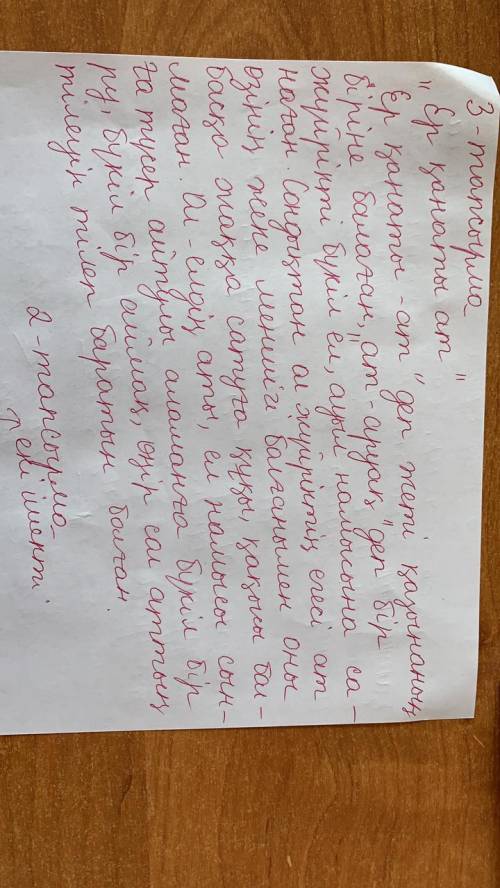 3-тапсырма
" Ер қанаты ат "
"Ер қанаты - ат" деп жеті қазынаның
біріне балаған, "ат - аруақ" деп бір
жүйрікті бүкіл ел, ауыл намысына са-
наған. Сондықтан ол жүйріктің егесі ат
өзінің жеке меншігі болғанымен оны
басқа жаққа сатуға құқы, қақысы бол-
маған. Ол - елдің аты, ел намысы сын-
ға түсер айтулы аламанға бүкіл бір
ру, бүкіл бір аймақ, өңір сол аттың
тілеуін тілеп баратын болған.
2 - тапсырма
Текемет.